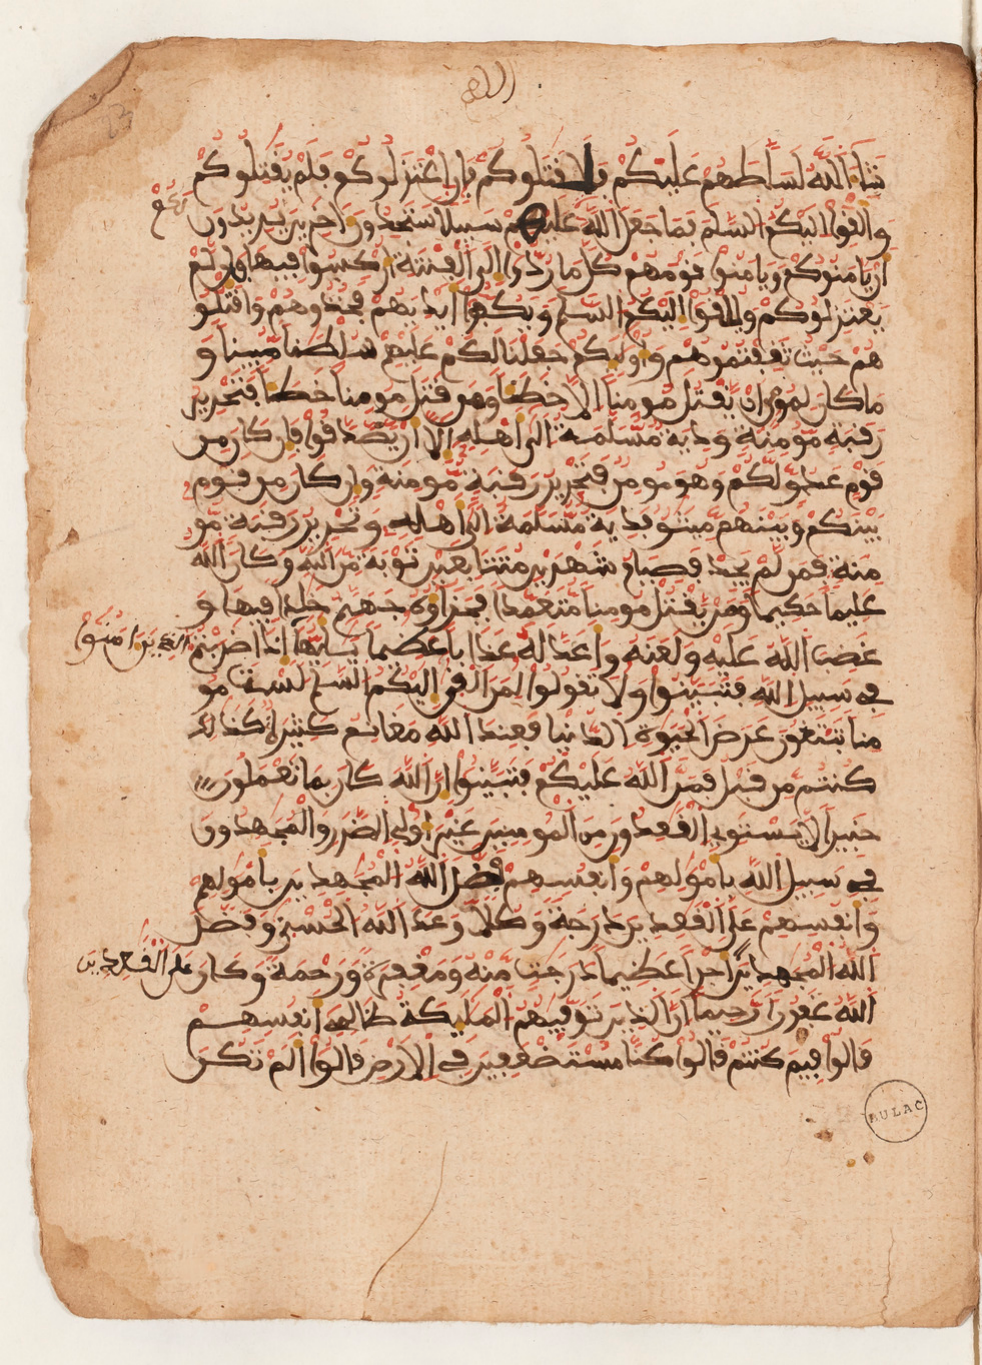 شاء الله لسلطهم عليكم فلقتلوكم فإن اعتزلوكم فلم يقتلوكم
والقوا اليكم السلم فما جعل الله لكم عليهم سبيلا ستجدون اخرين يريدون
ان يامنوكم ويامنوا قومهم كل ما ردوا الى الفتنة اركسوا فيها فإن لم
يعتزلوكم ويلقوا اليكم السلم ويكفوا ايديهم فخذوهم واقتلو
هم حيث ثقفتموهم واوليكم جعلنا لكم عليهم سلطنا مبينا و
ما كان لمومن ان يقتل مومنا الا خطئا ومن قتل مومنا خطئا فتحرير
رقبة مومنة ودية مسلمة الى اهله إلا ان يصدقوا فإن كان من
قوم عدو لكم وهو مومن فتحرير رقبة مومنة وإن كان من قوم
بينكم وبينهم ميثق فدية مسلمة الى اهله وتحرير رقبة مو
منة فمن لم يجد فصيام شهرين متتابعين توبة من الله وكان الله
عليما حكيما ومن يقتل مومنا متعمدا فجزاؤه جهنم خلدا فيها و
غضب الله عليه ولعنه واعد له عذابا عظيما يايها الذين امنوا اذا ضربتم
في سبيل الله فتبينوا ولا تقولوا لمن القى اليكم السلم لست مو
منا تبتغون عرض الحيوة الدنيا فعند الله مغانم كثيرة كذلك
كنتم من قبل فمن الله عليكم فتبينوا ان الله كان بما تعملون
خبيرا لا يستوي القعدون من المومنين غير اولي الضرر والمجهدون
في سبيل الله بامولهم وانفسهم فضل الله المجهدين بامولهم
وانفسهم على القعدين درجة وكلا وعد الله الحسنى وفضل
الله المجهدين على القعدين اجرا عظيما درجت منه ومغفرة ورحمة وكان
الله غفورا رحيما ان الذين توفيهم المليكة ظالمي انفسهم
قالوا فيم كنتم قالوا كنا مستضعفين في الارض قالوا الم تكن
BULAC